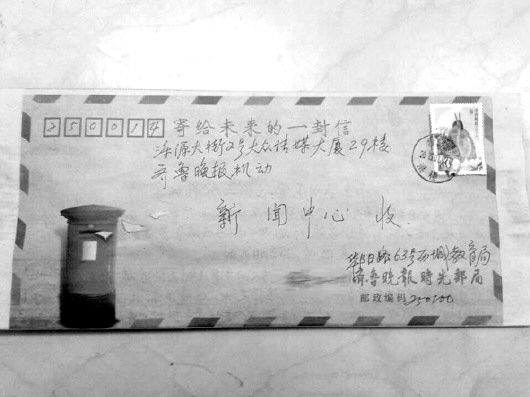 250014 寄给未来的一封信
泺源大街2号大众传媒大厦29楼
齐鲁晚报机动
新闻中心 收
63号历城教育局
齐鲁晚报時光邮局
邮政编码 250100